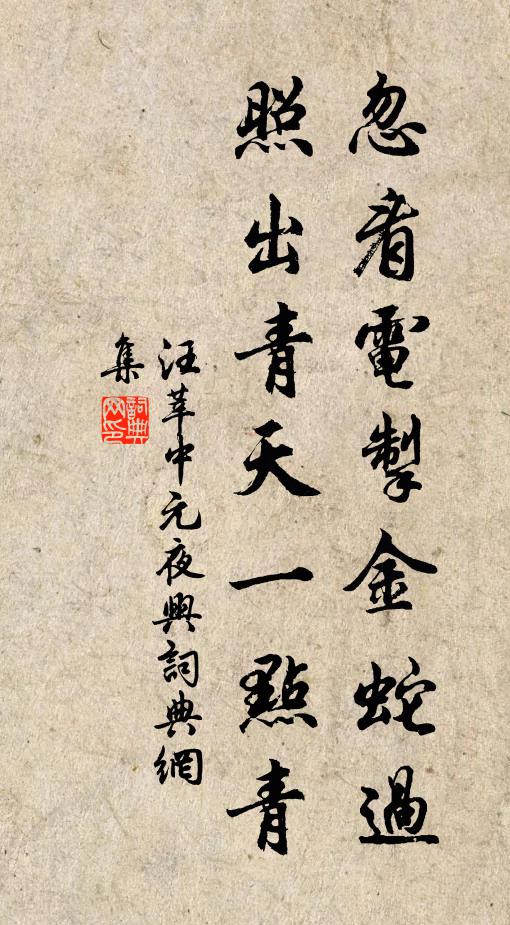 忽看電掣金蛇過
照出青天一點青
汪莘中元夜興詞典網
集
詞典网印